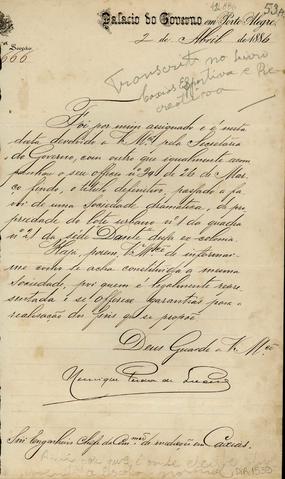 Palacio do Governo em Porto Alegre,
2 de Abril de 1886
53
Secção
666
Transcripto no livro
Caxias Esportiva e Re
creativa
Foi por mim assignado e é nesta
data devolvido a V. Mcê pela Secretaria
do Governo, com outro que igualmente acom
panhou o seu officio nº 94 de 26 de Mar
ço findo, o titulo definitivo, passado a fa
vor de uma Sociedade dramatica, da pro
priedade do lote urbano nº 1 da quadra
nº 21 da séde Dante dessa ex-colonia.
Haja, porem, V. Mcê de informar-
me como se acha constituida a mesma
Sociedade, por quem é legalmente repre
sentada e se offerece garantias para a
realisação dos fins que se propõe.
Deus Guarde a V. Mcê
Henrique Pereira de Lucena
Snr. Engenheiro Chefe da Commão de medição em Caxias.
DIA 1539